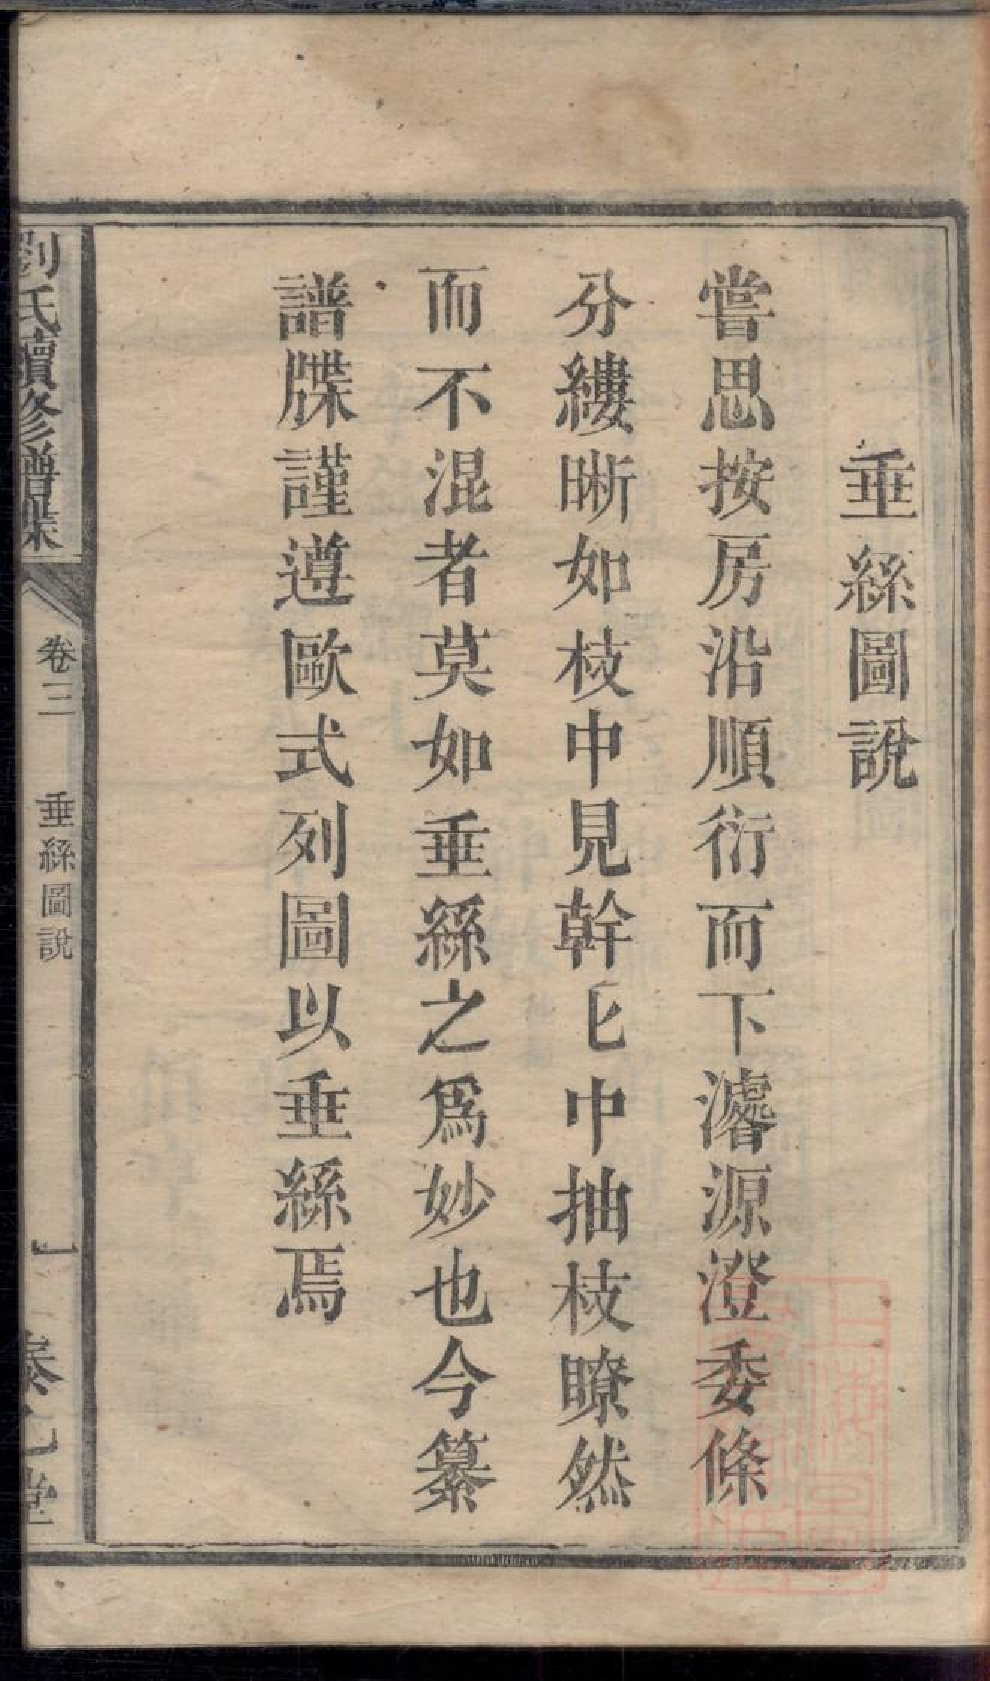 垂絲圖說
嘗思按房沿順衍而下濬源澄委條
分縷晰如枝中見幹匕中抽枝瞭然
而不混者莫如垂絲之爲妙也今纂
譜牒謹遵歐式列圖以垂絲焉
劉氏續修譜牒
卷三
垂絲圖說